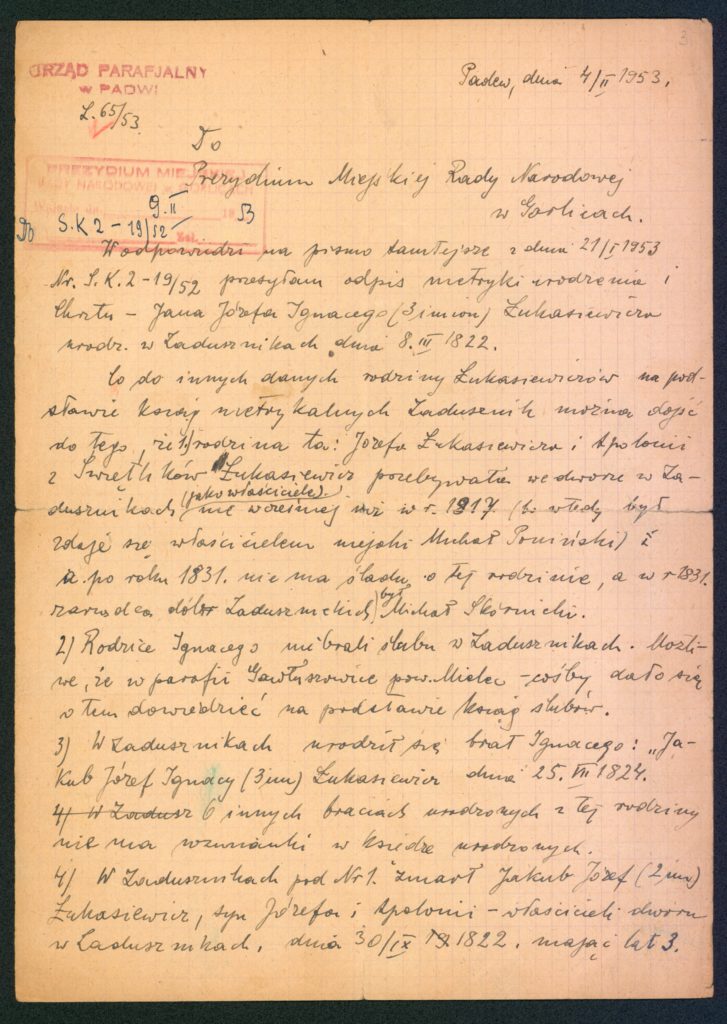 3
URZĄD PARAFJALNY
W PADWI
L. 65/53
Padew, dnia 4/II 1953.
Do
PREZYDIUM MIEJSKIEJ
RADY NARODOWEJ
9.II 53
Prezydium Miejskiej Rady Narodowej
w Gorlicach.
Do S.K 2 - 19/52
W odpowiedzi na pismo tamtejsze z dnia 21/I 1953
Nr. S.K. 2-19/52 przesyłam odpis metryki urodzenia i
Chrztu - Jana Józefa Ignacego (3 imion) Łukasiewicza
urodz. w Zadusznikach dnia 8.III 1822.
Co do innych danych rodziny Łukasiewiczów na pod-
stawie ksiąg metrykalnych Zadusznik można dojść
do tego, że 1) rodzina ta: Józefa Łukasiewicza i Apolonii
z Świetlików Łukasiewicz przebywała we dworze w Za-
dusznikach (jako właściciele) nie wcześniej niż w r. 1817 (bo wtedy był
zdaje się właścicielem niejaki Michał Poniński) i
a. po roku 1831. nie ma śladu o tej rodzinie, a w r 1831.
zarządcą dóbr Zadusznickich był Michał Skórnicki.
2) Rodzice Ignacego nie brali ślubu w Zadusznikach. Możli-
we, że w parafii Gawłuszowice pow. Mielec - cośby dało się
o tem dowiedzieć na podstawie ksiąg ślubów.
3) W Zadusznikach urodził się brat Ignacego: "Ja-
kub Józef Ignacy (3 im) Łukasiewicz dnia 25.VII 1824.
4) W Zadusz O innych braciach urodzonych z tej rodziny
nie ma wzmianki w księdze urodzonych.
4/ W Zadusznikach pod Nr 1. zmarł Jakub Józef (2 im)
Łukasiewicz, syn Józefa i Apolonii - właścicieli dworu
w Zadusznikach, dnia 30/IX 1822. mając lat 3.